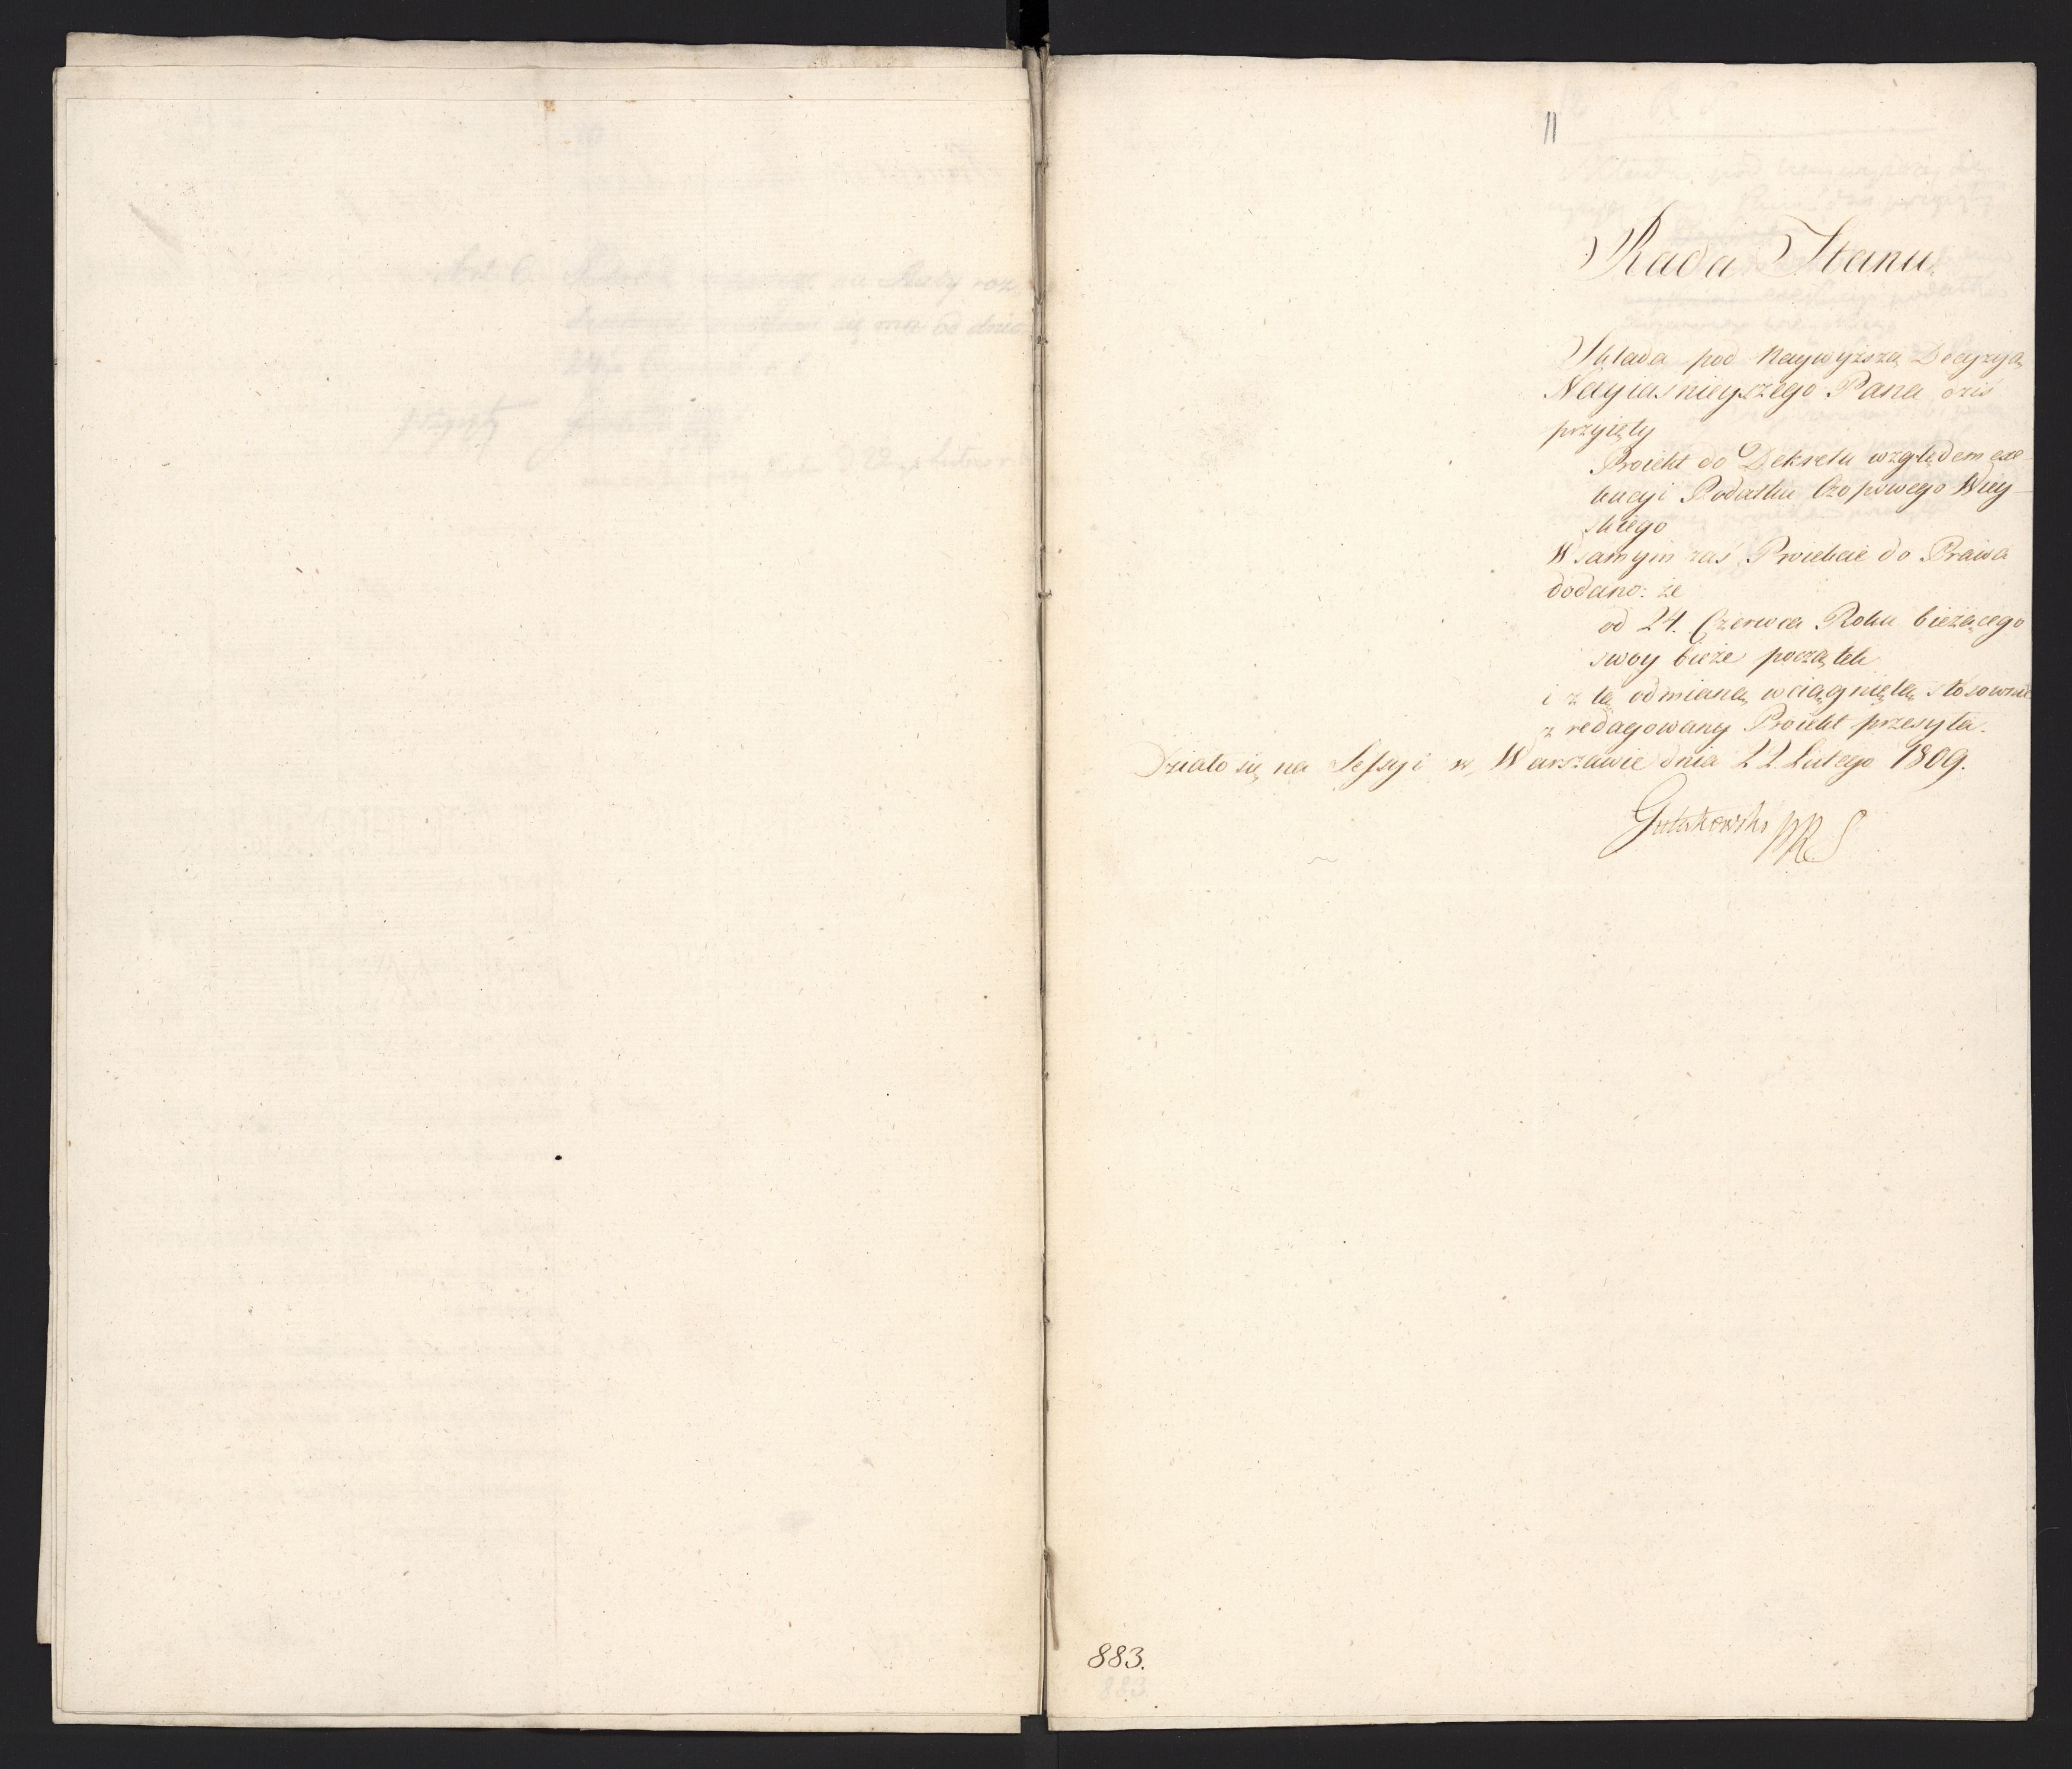 11
Rada Stanu.
Składa pod Naywyższą Decyzyą
Nayiaśnieyszego Pana dziś
przyięty
Proiekt do Dekretu względem exe-
kucyi Podatku Czopowego Wiey-
skiego
W samym zaś Proiekcie do Prawa
dodano: że
od 24. Czerwca Roku bieżącego
swoy bieże początek
i z tą odmianą wciągniętą stosownie
zredagowany Proiekt przesyła.
Działo się na Sessyi w Warszawie dnia 22. Lutego 1809.
Gutakowski PRS
883.